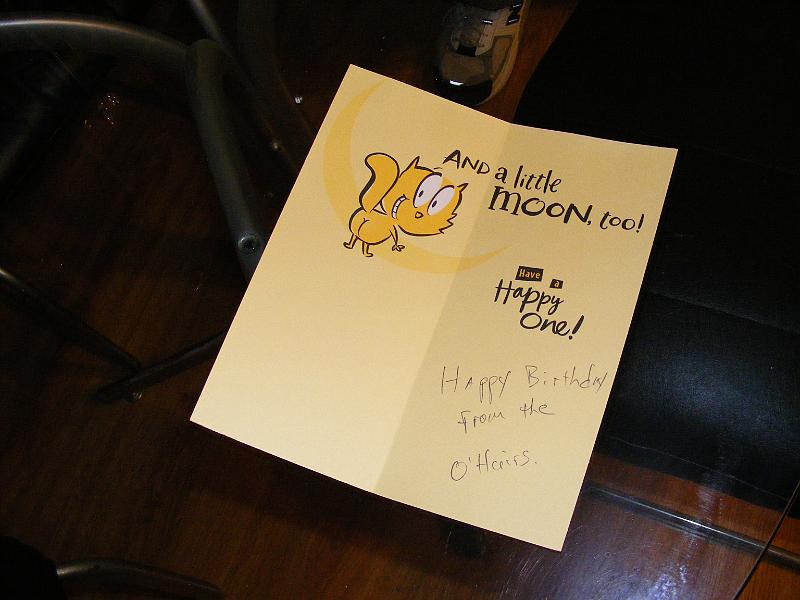 AND a little
MOON, too!
Have a
Happy
One!
Happy Birthday
From the
O'Hairs.